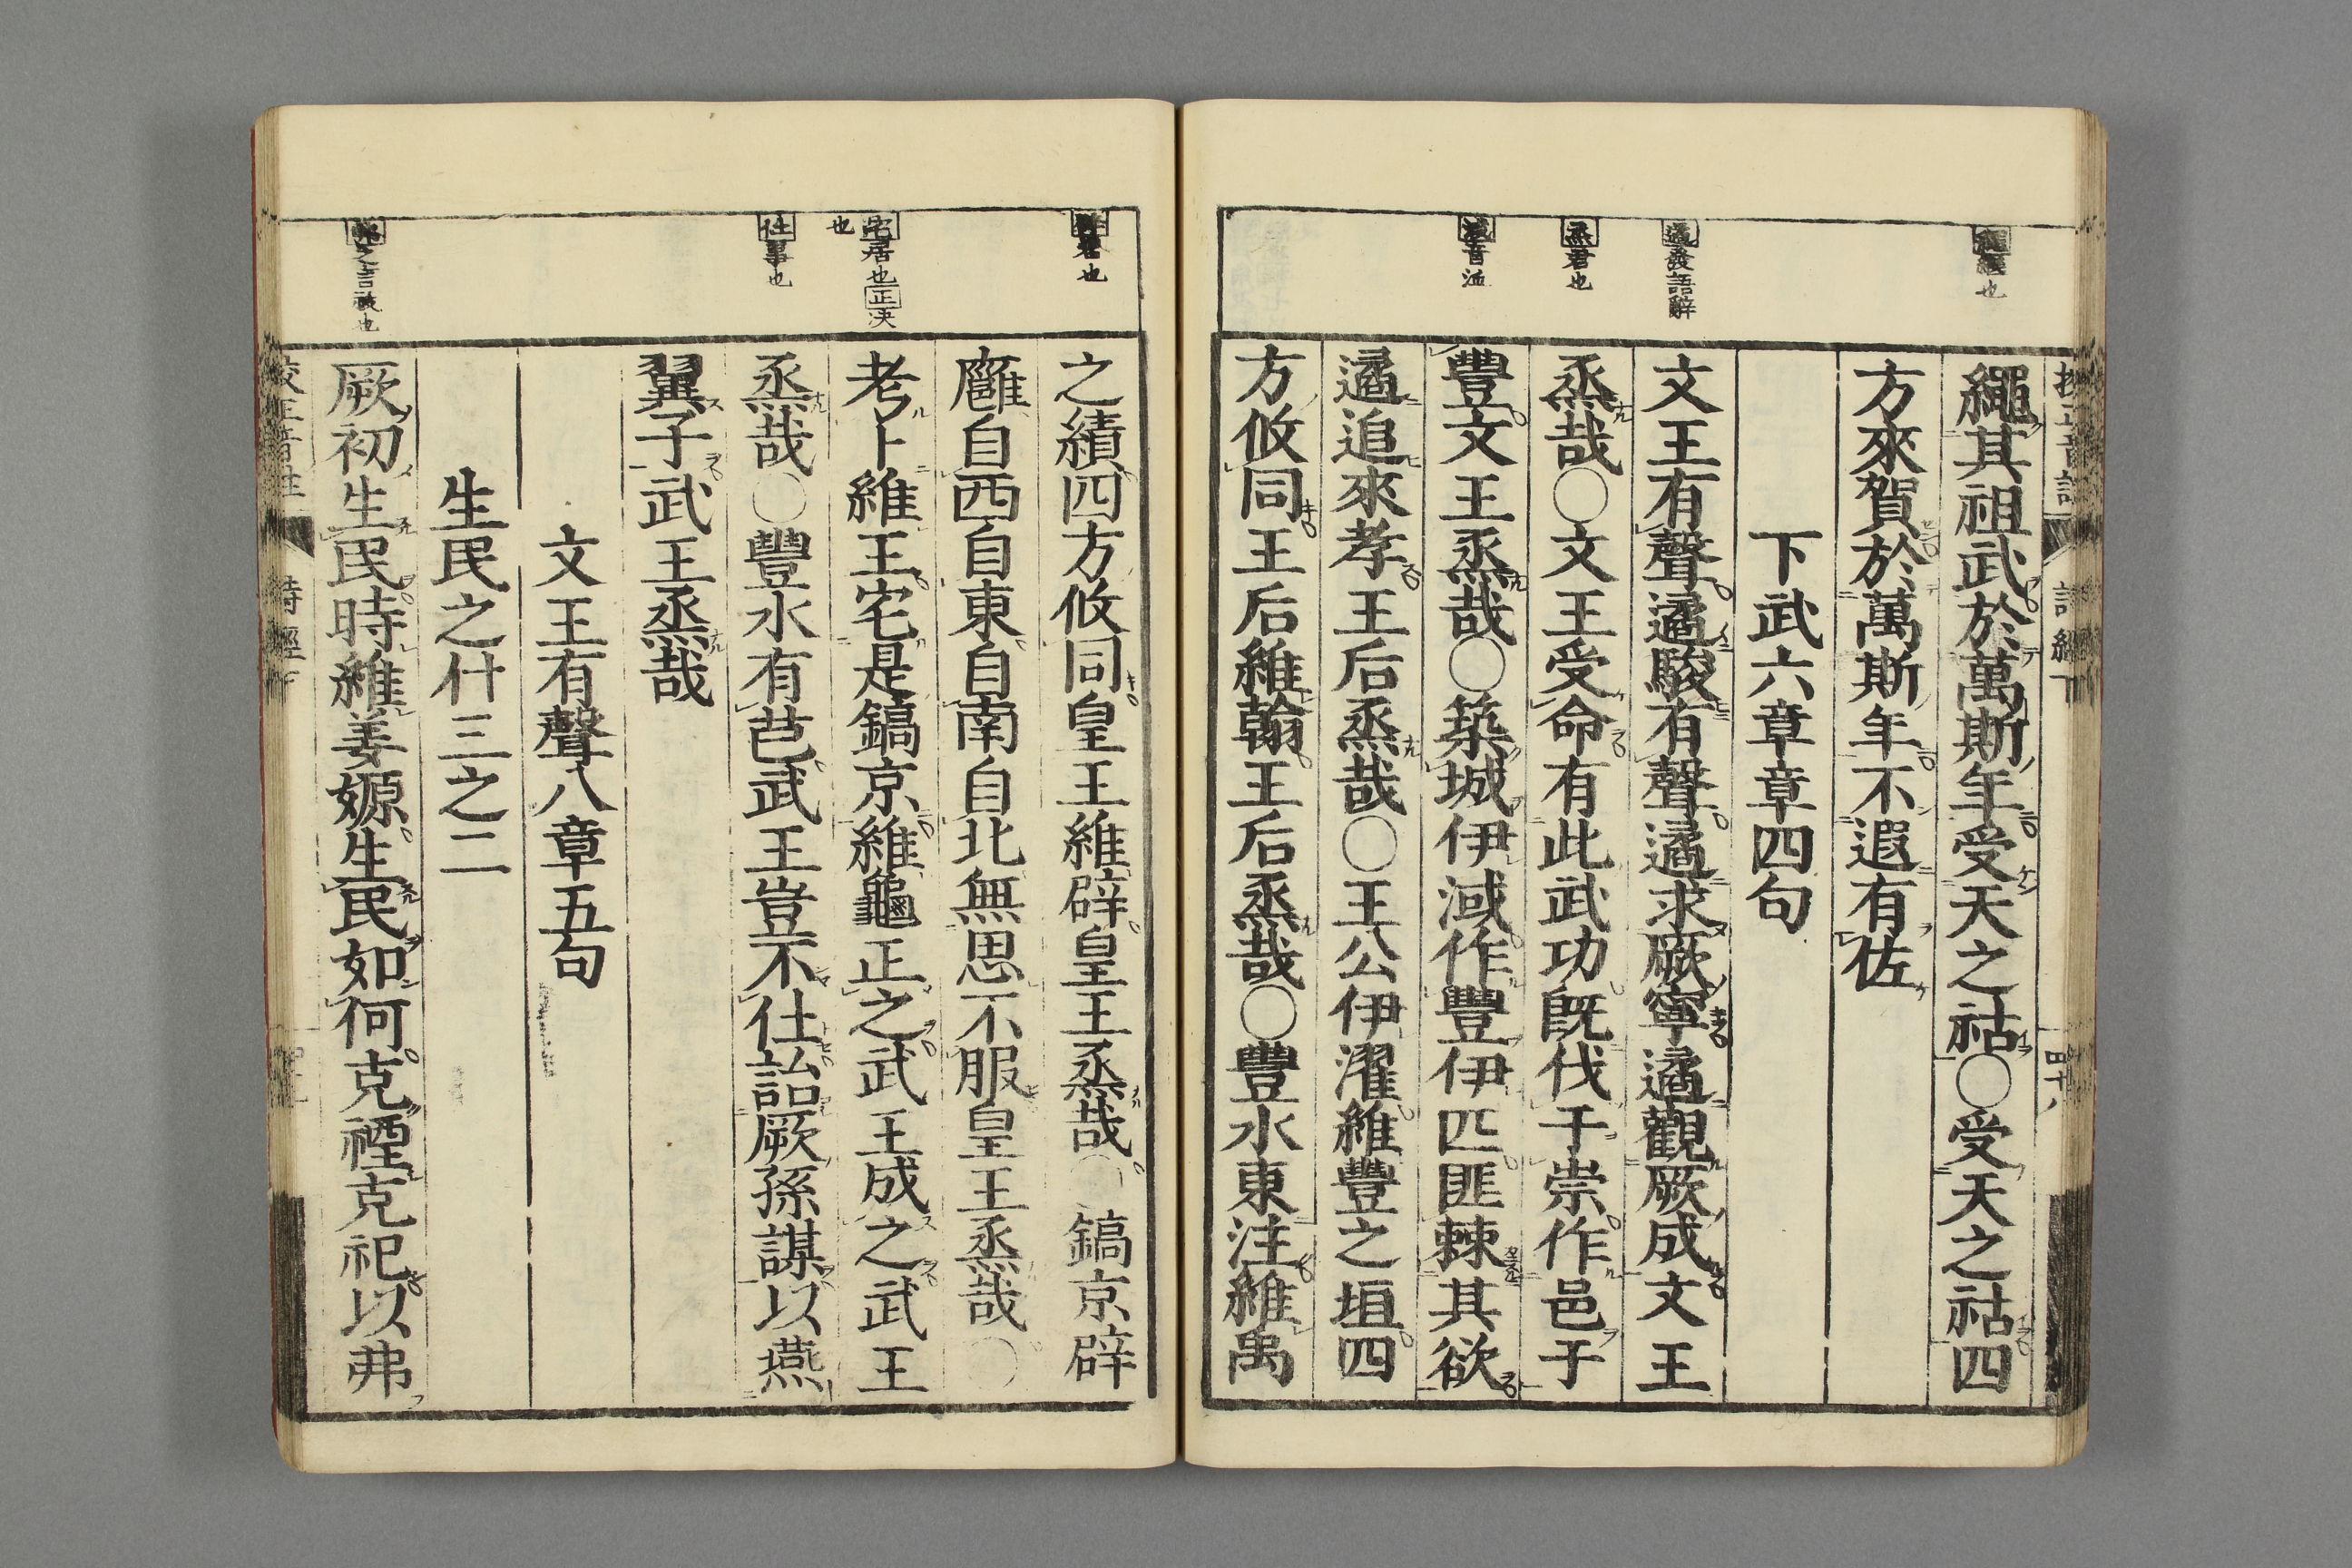 繩其祖武於萬斯年受天之祜○受天之祜四
方來賀於萬斯年不遐有佐
下武六章章四句
文王有聲遹駿有聲遹求厥寧遹觀厥成文王
烝哉○文王受命有此武功既伐于崇作邑于
豐文王烝哉○築城伊淢作豐伊匹匪棘其欲
遹追來孝王后烝哉○王公伊濯維豐之垣四
方攸同王后維翰王后烝哉○豐水東注維禹
之績四方攸同皇王維辟皇王烝哉○鎬京辟
廱自西自東自南自北無思不服皇王烝哉○
考卜維王宅是鎬京維龜正之武王成之武王
烝哉○豐水有芑武王豈不仕詒厥孫謀以燕
翼子武王烝哉
文王有聲八章五句
生民之什三之二
厥初生民時維姜嫄生民如何克禋克祀以弗
遹發語辭
烝君也
淢音洫
辟君也
宅居也正決
也
仕事也
之言祓也
詩經